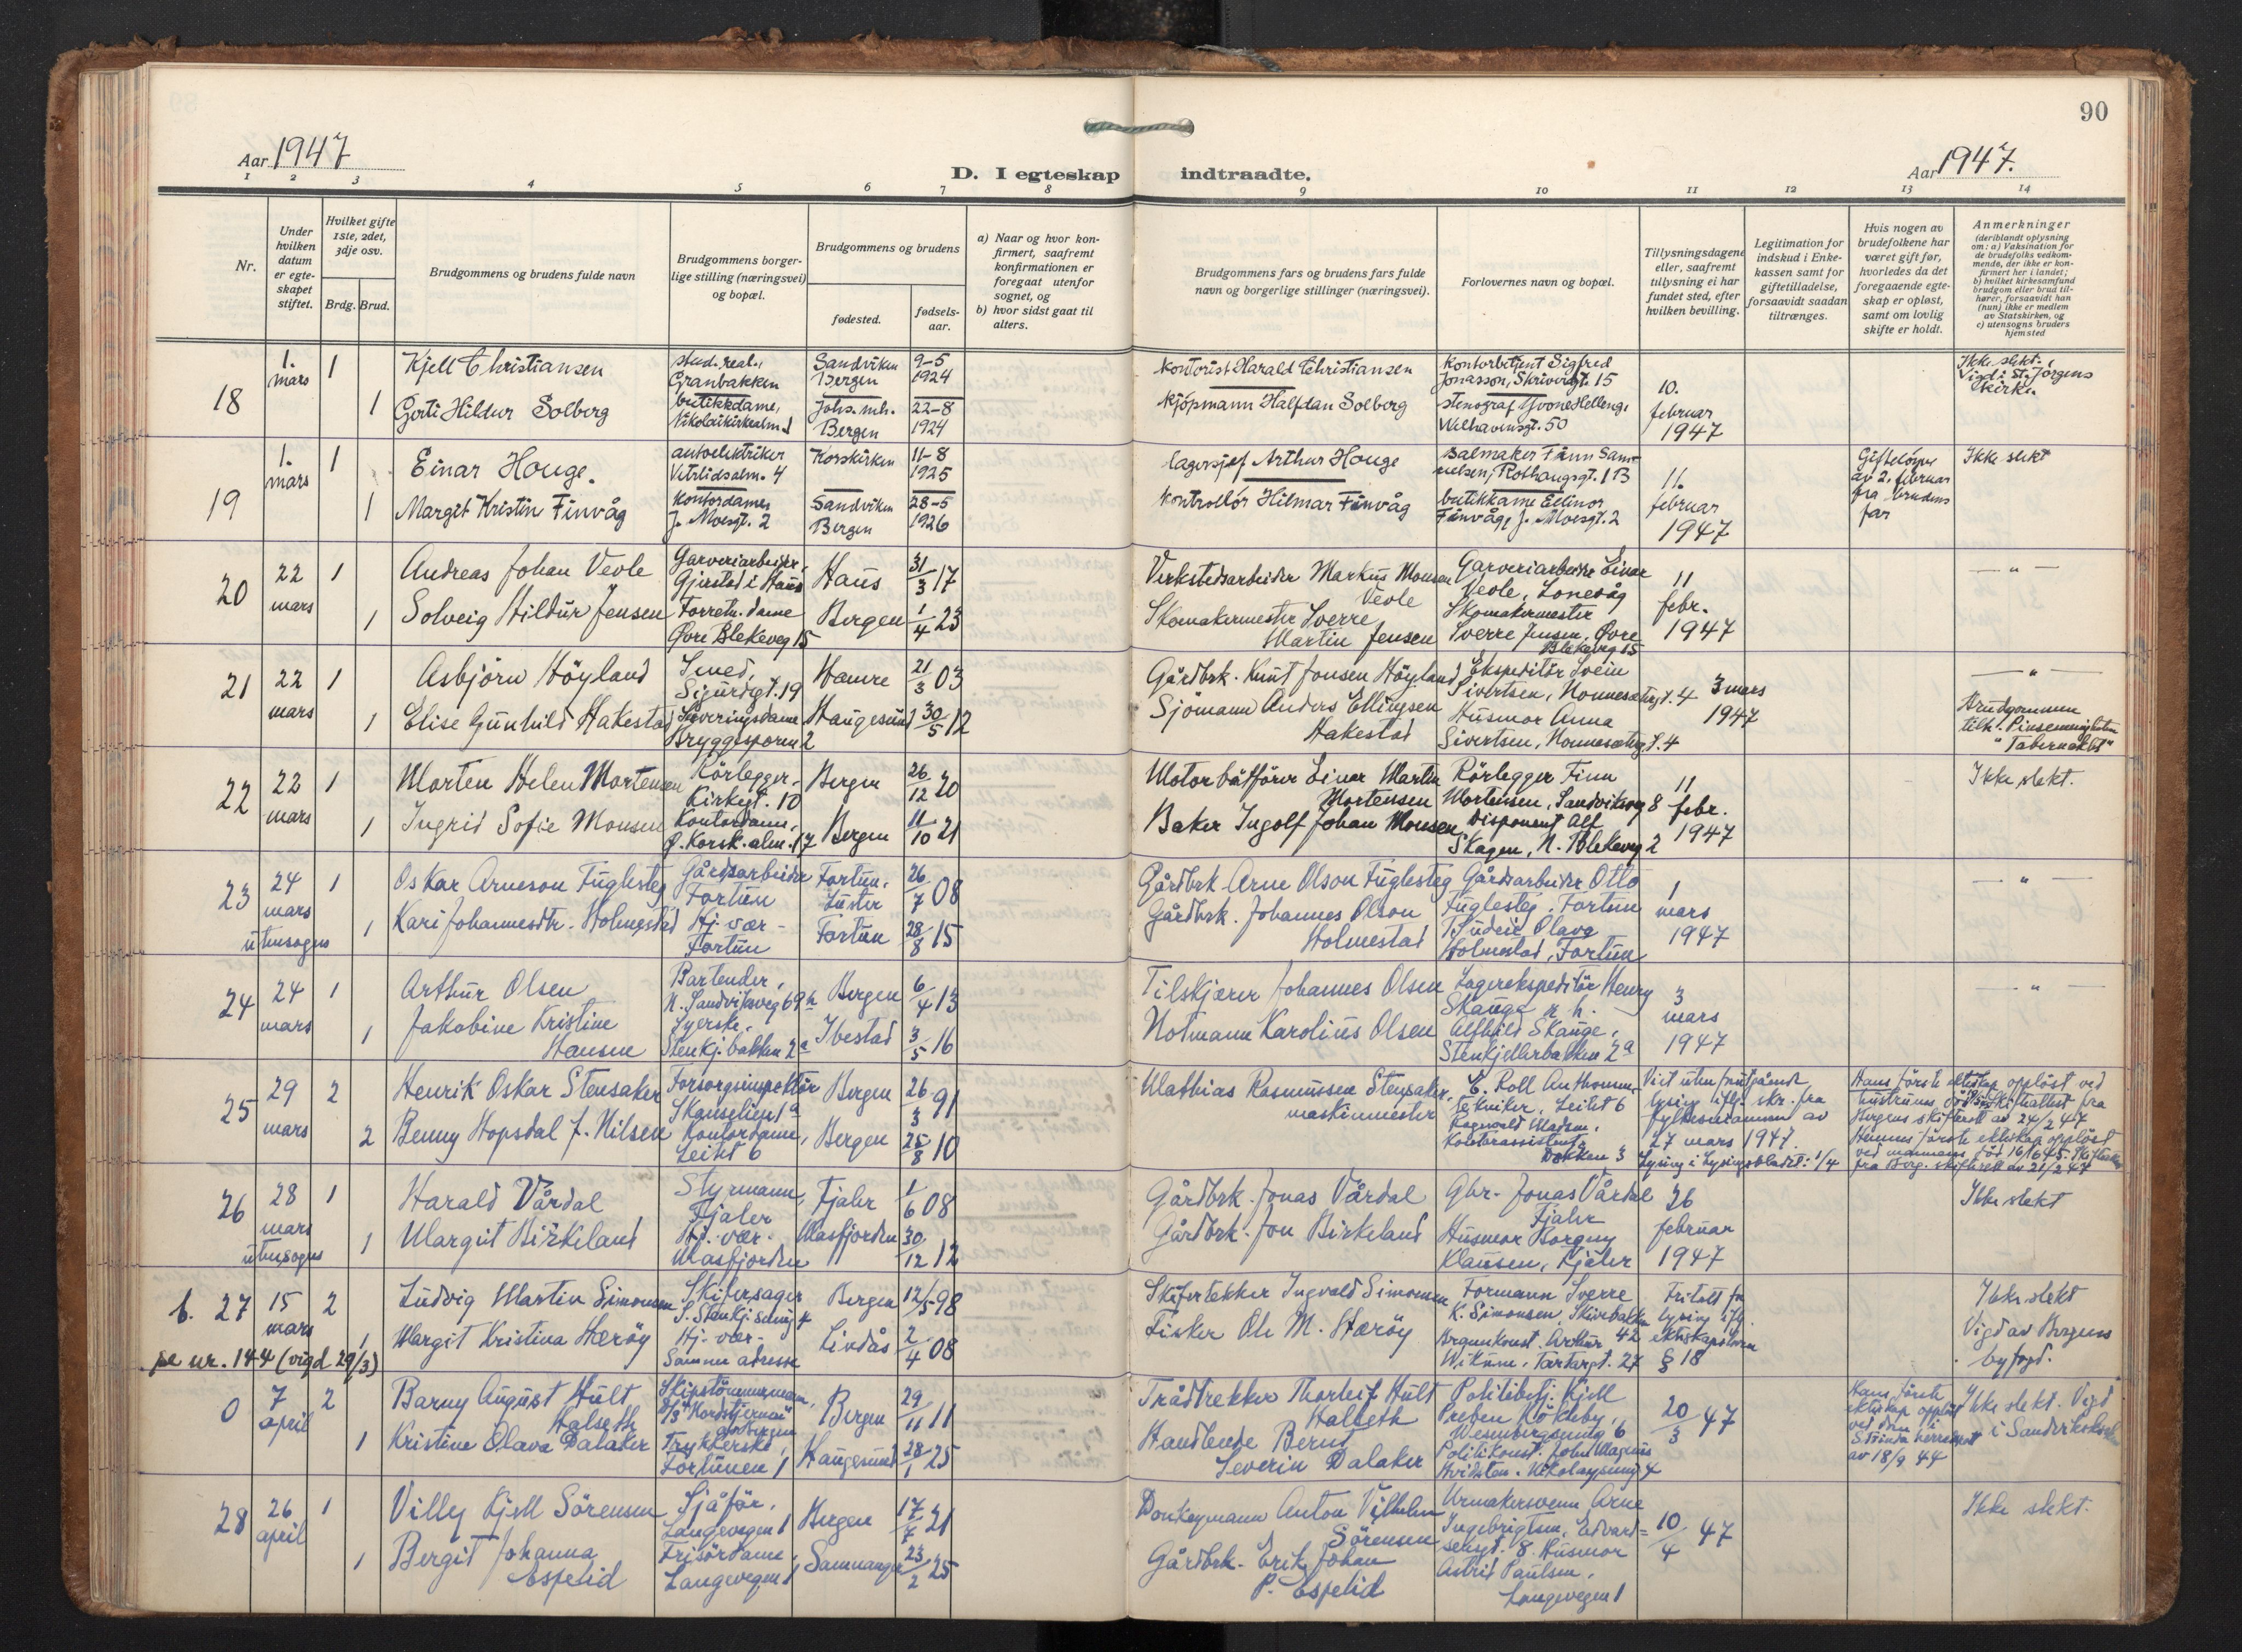 90
Aar 1947
D. I egteskap indtraadte.
Aar 1947.
1 2 3 4 5 6 7 8 9 10 11 12 13 14
Nr.
Under hvilken datum er egte-skapet stiftet.
Hvilket gifte 1ste, 2det, 3dje osv.
Brdg. Brud.
Brudgommens og brudens fulde navn
Brudgommens borger-lige stilling (næringsvei) og bopæl.
Brudgommens og brudens
fødested.
fødsels-aar.
a) Naar og hvor kon-firmert, saafremt konfirmationen er foregaat utenfor sognet, og
b) hvor sidst gaat til alters.
Brudgommens fars og brudens fars fulde navn og borgerlige stillinger (næringsvei).
Forlovernes navn og bopæl.
Tillysningsdagene eller, saafremt tillysning ei har fundet sted, efter hvilken bevilling.
Legitimation for indskud i Enke-kassen samt for giftetilladelse, forsaavidt saadan tiltrænges.
Hvis nogen av brudefolkene har været gift før, hvorledes da det foregaaende egte-skap er opløst, samt om lovlig skifte er holdt.
Anmerkninger
(deriblandt oplysning om: a) Vaksination for de brudefolks vedkom-mende, der ikke er kon-firmert her i landet; b) hvilket kirkesamfund brudgom eller brud til-hører, forsaavidt han (hun) ikke er medlem av Statskirken, og c) utensogns bruders hjemsted
18 1. mars 1 Kjell Christiansen stud. real., Granbakken Sandviken Bergen 9-5 1924 Kontorist Harald Christiansen Kontorbetjent Sigfred Jonasson, Skrivergt. 15 10. februar 1947 Ikke slekt. Vied i St. Jörgens kirke.
1 Gerti Hildur Solberg butikkdame, Nikolaikirkealm. Johs. mh. Bergen 22-8 1924 Kjöpmann Halfdan Solberg stenograf Yvone Helleng, Welhavensgt. 50
19 1. mars 1 Einar Houge. autoelektriker Vetrlidsalm. 4 Korskirken 11-8 1925 lagersjef Arthur Houge Salmaker Finn Sam-uelsen, Rothaugsgt. 1B 11. februar 1947 Giftelöyve av 2. februar fra brudens far Ikke slekt
1 Margit Kristin Finvåg Kontordame, J. Moesgt. 2 Sandviken Bergen 28-5 1926 Kontrollör Hilmar Finvåg butikkdame Ellinor Finvåg, J. Moesgt. 2
20 22 mars 1 Andreas Johan Veole Garveriarbeider, Gjerstad i Haus Haus 31/3 17 Verkstedsarbeider Markus Monsen Veole Garveriarbeider Einar Veole, Lonevåg 11 febr. 1947 — " —
1 Solveig Hildur Jensen Forretn. dame Øvre Blekeveg 15 Bergen 1/4 23 Skomakermester Sverre Martin Jensen Skomakermester Sverre Jensen, Øvre Blekeveg 15
21 22 mars 1 Asbjörn Höyland Smed, Sigurdsgt. 19 Hamre 21/3 03 Gårdbrk. Knut Jonsen Höyland Ekspeditör Svein Sivertsen, Nonnesetergt. 4 3 mars 1947 — " —
1 Elise Gunhild Hakestad Serveringsdame Bryggesporen 2 Haugesund 30/5 12 Sjömann Anders Ellingsen Hakestad Husmor Anna Sivertsen, Nonneseterg t. 4 Brudgommen tilh. Pinsemenigheten "Tabernaklet"
22 22 mars 1 Morten Helen Mortensen Rörlegger - Kirkegt. 10 Bergen 26/12 20 Motorbåtförer Einar Martin Mortensen Rörlegger Finn Mortensen, Sandviksveg 8 11 febr. 1947 Ikke slekt.
1 Ingrid Sofie Monsen Kontordame, Ø. Korsk. alm. 17 Bergen 11/10 21 Baker Ingolf Johan Monsen Disponent Alf Skagen, N. Blekeveg 2
23 24 mars utensogns 1 Oskar Arneson Fuglesteg Gårdsarbeider Fortun Fortun, Luster 26/7 08 Gårdbrk Arne Olson Fuglesteg Gårdsarbeider Otto Fuglesteg, Fortun 1 mars 1947 — " —
1 Kari Johannesdtr. Holmestad Hj. vær - Fortun Fortun 28/8 15 Gårdbrk. Johannes Olson Holmestad Olava Holmestad, Fortun
24 24 mars 1 Arthur Olsen Bartender, N. Sandviksveg 69 Bergen 6/4 13 Tilskjærer Johannes Olsen Lagerekspeditör Henry Skauge 3 mars 1947 — " —
1 Jakobine Kristine Hansen Syerske, Stenkj. bakken 2a Ibestad 3/5 16 Notmann Karolius Olsen Alfhild Skauge, Stenkjellerbakken 2a
25 29 mars 2 Henrik Oskar Stensaker Forsorgsinspektör Skanselien 1a Bergen 26/3 91 Mathias Rasmussen Stensaker, maskinmester E. Roll Anthonsen, tekniker, Leitet 6 Viet uten forutgående lysing ifl. skr. fra fylkesmannen av 27 mars 1947. Lysing i Lysingsbladet: 1/4 Hans förste ekteskap opplöst ved hustruens död. Skifteattest fra Bergens skifterett av 24/2 47
2 Benny Hopsdal f. Nilsen Kontordame, Leitet 6 Bergen 25/8 10 Ragnvald Madsen, Kontorassistent, Dokken 3 Hennes förste ekteskap opplöst ved mannens död 16/6 45. Skifteattest fra Berg. skifterett av 21/2 47
26 28 mars utensogns 1 Harald Vårdal Styrmann, Fjaler Fjaler 1/6 08 Gårdbrk. Jonas Vårdal Gbr. Jonas Vårdal Fjaler 26 februar 1947 Ikke slekt
1 Margit Birkeland Hj. vær - Masfjorden Masfjorden 30/12 12 Gårdbrk. Jon Birkeland Husmor Borgny Klausen, Fjaler
b. 27 15 mars 2 Ludvig Martin Simonsen Skifersager S. Stenkj. smug 4 Bergen 12/5 98 Skifertekker Ingvald Simonsen Formann Sverre K. Simonsen, Skivebakken 42 Fritatt for lysing ifl. ekteskapsloven § 18 Ikke slekt Vigd av Bergens byfogd.
1 Margit Kristina Herøy Hj. vær - Samme adresse Lindås 2/4 08 Fisker Ole M. Herøy Arthur Tartargt. 27
se nr. 144 (vigd 29/3)
0 7 april 2 Barny August Hult Halseth Skipstömmermann, D/S "Nordstjernen" av Bergen Bergen 29/11 11 Trådtrekker Thorleif Hult Halseth Politibetj. Kjell Preben Kökeby, Wesenbergsmug 6 20/3 47 Hans förste ekteskap opplöst ved dom i Strinda herredsrett av 18/9 44 Ikke slekt. Vigd i Sandvikskirken
1 Kristine Olava Dalaker Trykkerske, Fortunen 1 Haugesund 28/1 25 Handlende Bernt Severin Dalaker Politikonst. John Magnus Hvidsten, Nikolaysmug 4
28 26 april 1 Villy Kjell Sörensen Sjåför, Langevegen 1 Bergen 17/7 21 Donkeymann Anton Vilhelm Sörensen Urmakersvenn Arne Ingebrigtsen, Edvard=sensgt. 8. 10/4 47 Ikke slekt.
1 Bergit Johanna Espelid Frisördame, Langevegen 1 Samnanger 23/2 25 Gårdbrk. Erik Johan P. Espelid Husmor Astrid Paulsen, Langevegen 1